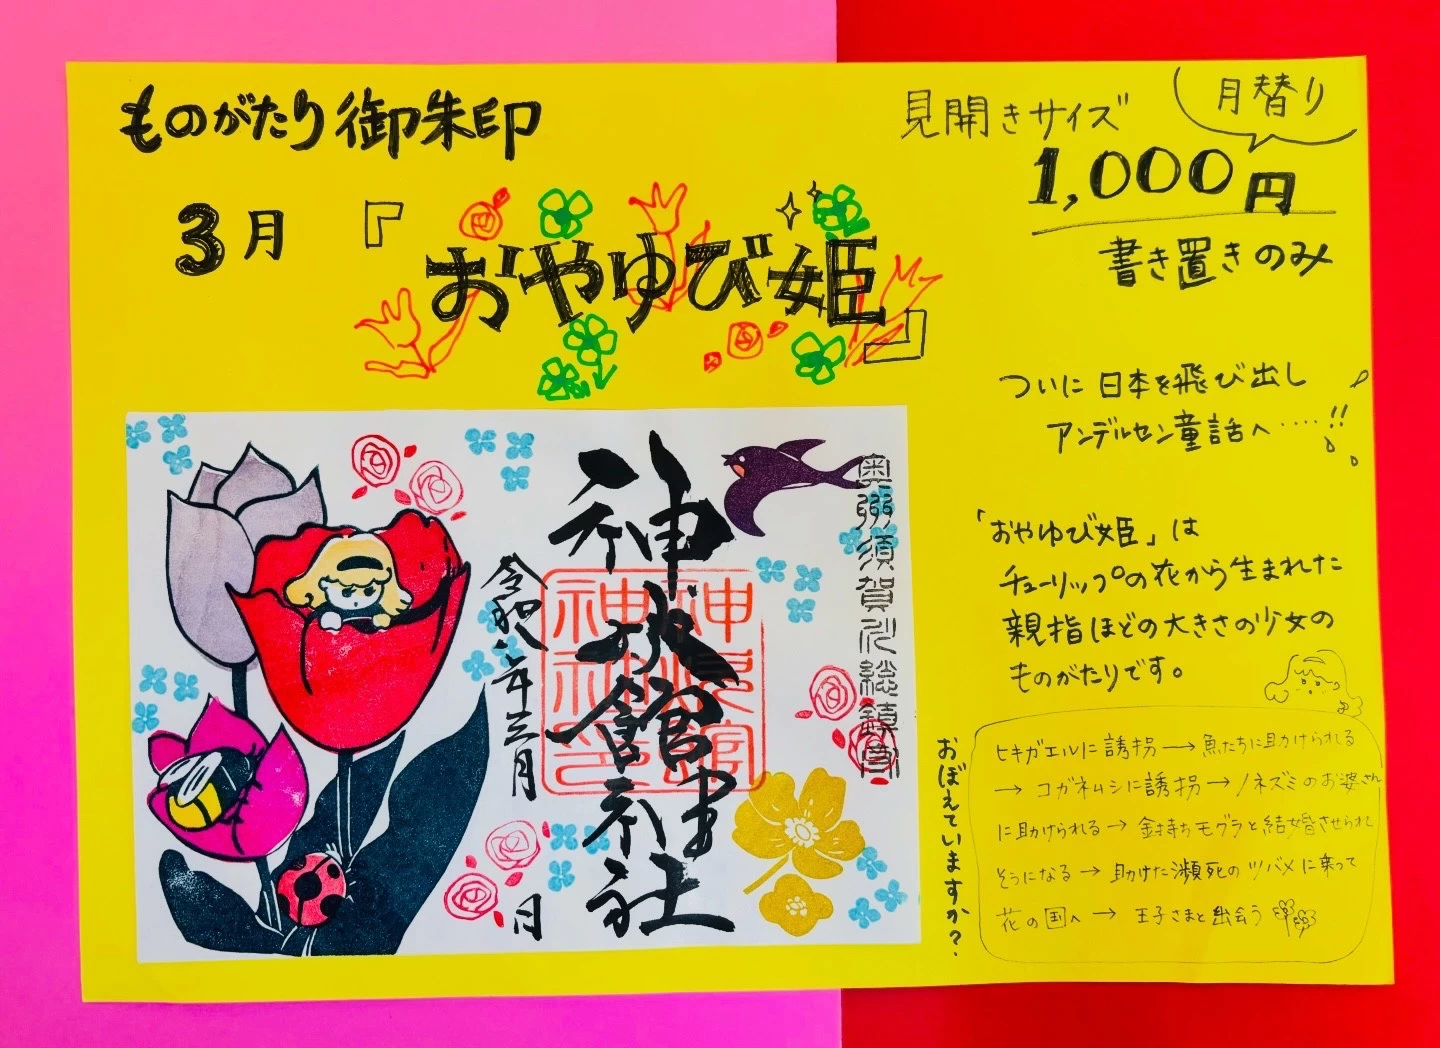 ものがたり御朱印
見開きサイズ
月替り
1,000円
書き置きのみ
3月
『おやゆび姫』
ついに日本を飛び出し
アンデルセン童話へ‥‥!!
「おやゆび姫」は
チューリップの花から生まれた
親指ほどの大きさの少女の
ものがたりです。
おぼえていますか?
ヒキガエルに誘拐→魚たちに助けられる
→コガネムシに誘拐→ノネズミのお婆さん
に助けられる→金持ちモグラと結婚させられ
そうになる→助けた瀕死のツバメに乗って
花の国へ→王子さまと出会う
奥州須賀川総鎮守
神炊館神社
令和八年三月
日